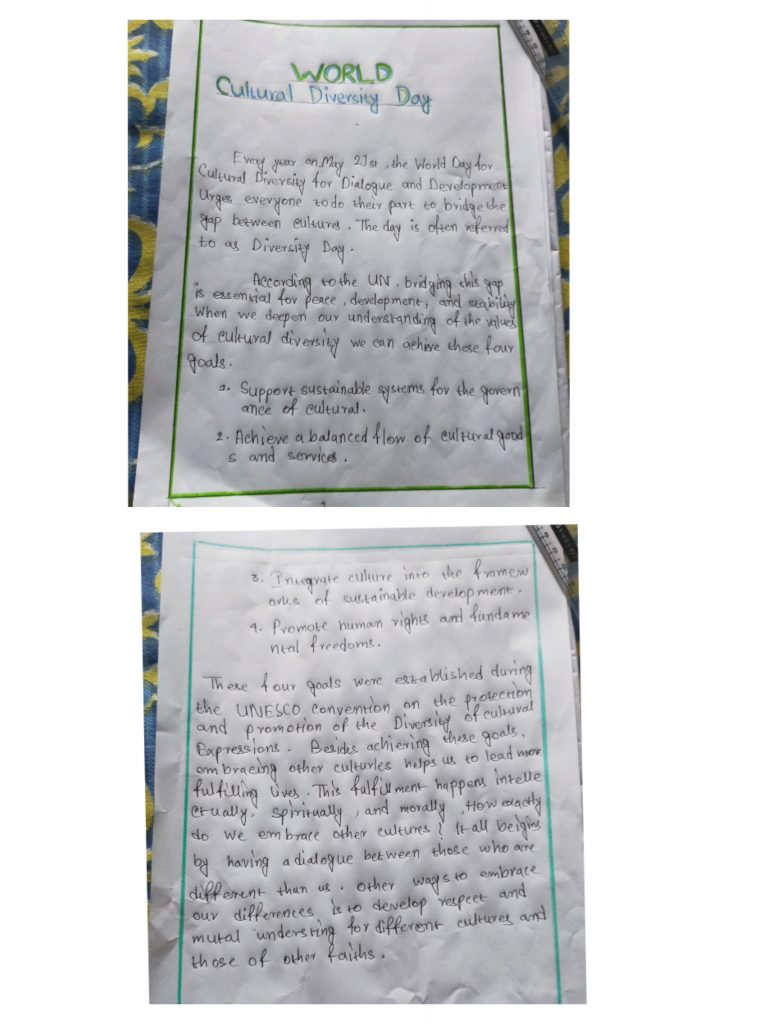 WORLD
Cultural Diversity Day
Every year on May 21st, the World Day for
Cultural Diversity for Dialogue and Development
Urges everyone to do their part to bridge the
gap between cultures. The day is often referred
to as Diversity Day.
According to the UN, bridging this gap
is essential for peace, development, and stability
When we deepen our understanding of the values
of cultural diversity we can achive these four
goals.
1. Support sustainable systems for the govern
ance of cultural.
2. Achieve a balanced flow of cultural good
s and services.
3. Integrate culture into the framew
orks of sustainable development.
4. Promote human rights and fundame
ntal freedoms.
These four goals were established during
the UNESCO convention on the protection
and promotion of the Diversity of cultural
Expressions. Besides achieving these goals,
embracing other culturles helps us to lead more
fulfilling lives. This fulfillment happens intelle
ctually, spiritually, and morally, How exactly
do we embrace other cultures? It all beigins
by having a dialogue between those who are
different than us. other ways to embrace
our differences is to develop respect and
mutal understing for different cultures and
those of other faiths.